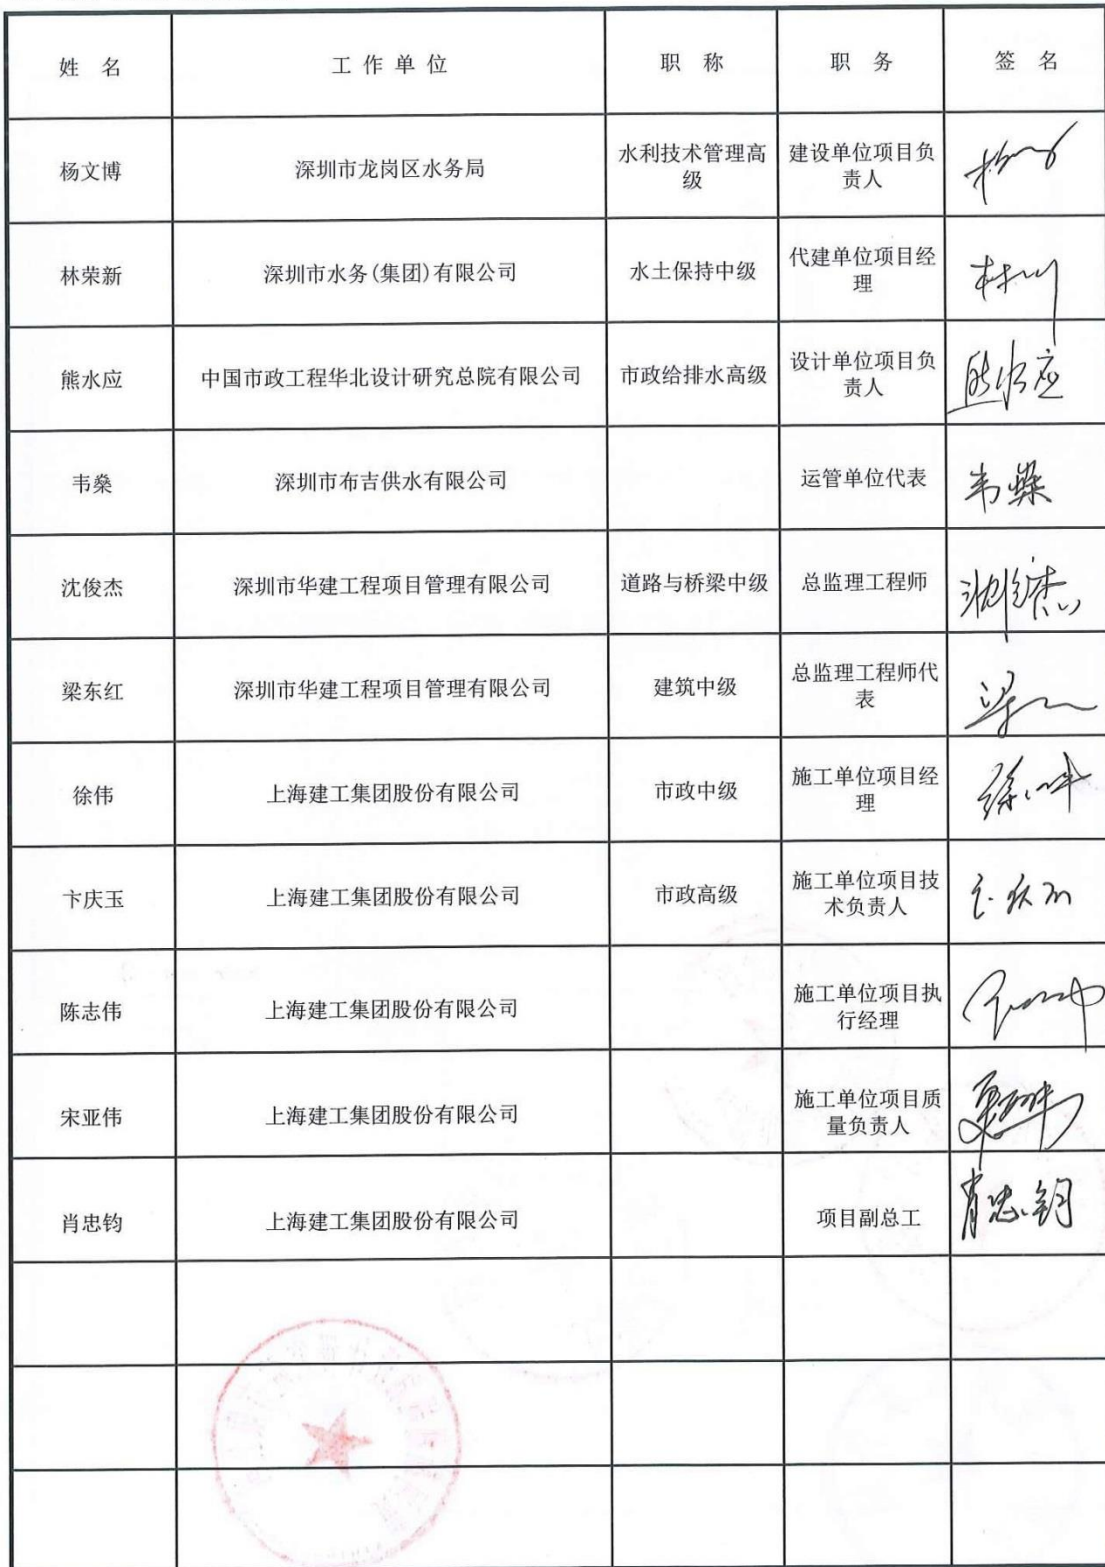 姓 名 工 作 单 位 职 称 职 务 签 名
杨文博 深圳市龙岗区水务局 水利技术管理高 建设单位项目负
级 责人
林荣新 深圳市水务(集团)有限公司 水土保持中级 代建单位项目经
理
熊水应 中国市政工程华北设计研究总院有限公司 市政给排水高级 设计单位项目负 熊水应
责人
韦燊 深圳市布吉供水有限公司 运管单位代表 韦燊
沈俊杰 深圳市华建工程项目管理有限公司 道路与桥梁中级 总监理工程师 沈俊杰
梁东红 深圳市华建工程项目管理有限公司 建筑中级 总监理工程师代
表
徐伟 上海建工集团股份有限公司 市政中级 施工单位项目经 徐伟
理
卞庆玉 上海建工集团股份有限公司 市政高级 施工单位项目技 卞庆玉
术负责人
陈志伟 上海建工集团股份有限公司 施工单位项目执
行经理
宋亚伟 上海建工集团股份有限公司 施工单位项目质
量负责人
肖忠钧 上海建工集团股份有限公司 项目副总工 肖忠钧